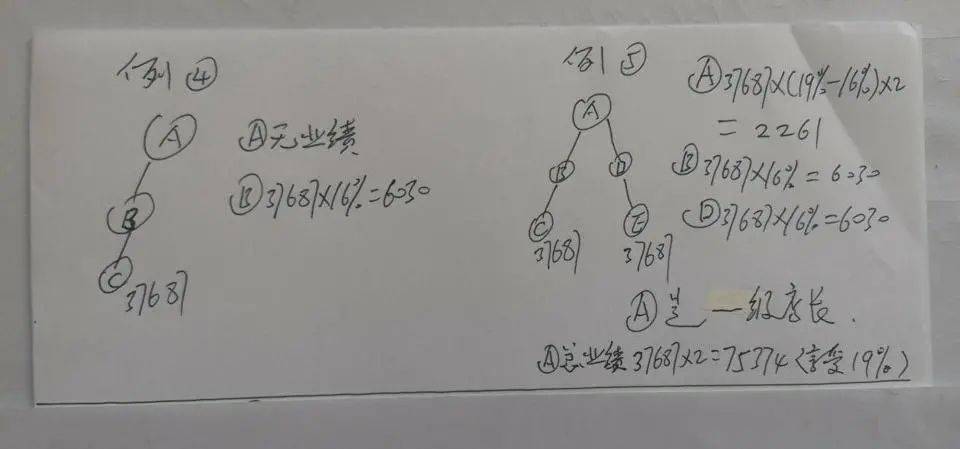 例④
Ⓐ
Ⓐ无业绩
Ⓑ37687×16%=6030
Ⓑ
Ⓒ
37687
例⑤
Ⓐ
Ⓑ Ⓓ
Ⓒ Ⓔ
37687 37687
Ⓐ37687×(19%-16%)×2
=2261
Ⓑ37687×16%=6030
Ⓓ37687×16%=6030
Ⓐ是一级店长.
Ⓐ总业绩37687×2=75374(享受19%)